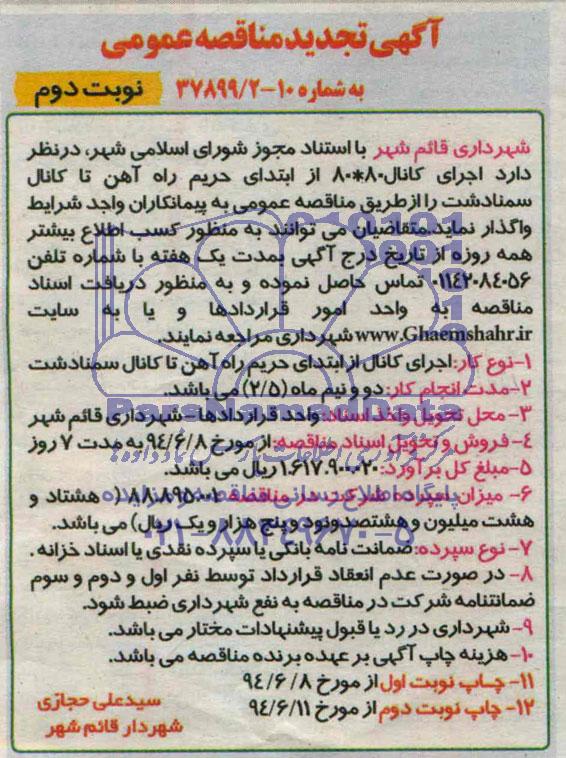 آگهی تجدید مناقصه عمومی
به شماره ۱۰-۳۷۸۹۹/۲
نوبت دوم
شهرداری قائم شهر با استناد مجوز شورای اسلامی شهر، درنظر
دارد اجرای کانال ۸۰*۸۰ از ابتدای حریم راه آهن تا کانال
سمنادشت را ازطریق مناقصه عمومی به پیمانکاران واجد شرایط
واگذار نماید.متقاضیان می توانند به منظور کسب اطلاع بیشتر
همه روزه از تاریخ درج آگهی بمدت یک هفته با شماره تلفن
۰۱۱۴۲۰۸۴۰۵۶ تماس حاصل نموده و به منظور دریافت اسناد
مناقصه به واحد امور قراردادها و یا به سایت
www.Ghaemshahr.ir شهرداری مراجعه نمایند.
۱-نوع کار:اجرای کانال از ابتدای حریم راه آهن تا کانال سمنادشت
۲-مدت انجام کار: دو و نیم ماه (۲/۵) می باشد.
۳- محل تحویل واخذ اسناد: واحد قراردادها -شهرداری قائم شهر
۴- فروش و تحویل اسناد مناقصه: از مورخ ۹۴/۶/۸ به مدت ۷ روز
۵-مبلغ کل برآورد: ریال می باشد.
۶- میزان سپرده شرکت در مناقصه ( هشتاد و
هشت میلیون و هشتصدونود و پنج هزار و یک ریال) می باشد.
۷- نوع سپرده: ضمانت نامه بانکی یا سپرده نقدی یا اسناد خزانه.
۸- در صورت عدم انعقاد قرارداد توسط نفر اول و دوم و سوم
ضمانتنامه شرکت در مناقصه به نفع شهرداری ضبط شود.
۹- شهرداری در رد یا قبول پیشنهادات مختار می باشد.
۱۰- هزینه چاپ آگهی بر عهده برنده مناقصه می باشد.
۱۱- چاپ نوبت اول از مورخ ۹۴/۶/۸
۱۲- چاپ نوبت دوم از مورخ ۹۴/۶/۱۱
سیدعلی حجازی
شهردار قائم شهر
پایگاه اطلاع رسانی مناقصه و مزایده
۰۲۱-۸۸۳۴۹۶۷۰-۵